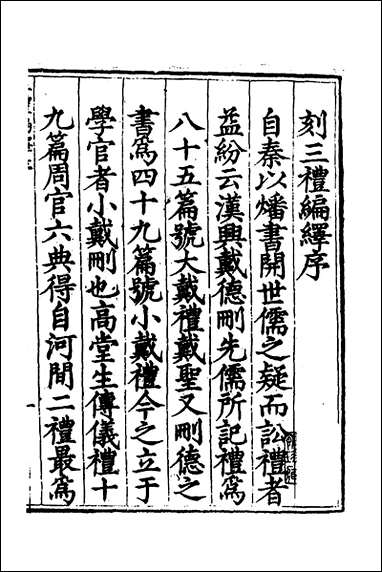 刻三禮編繹序
自秦以燔書開世儒之疑而訟禮者
益紛云漢興戴德刪先儒所記禮為
八十五篇號大戴禮戴聖又刪德之
書爲四十九篇號小戴禮今之立于
學官者小戴刪也高堂生傳儀禮十
九篇周官六典得自河間二禮最爲